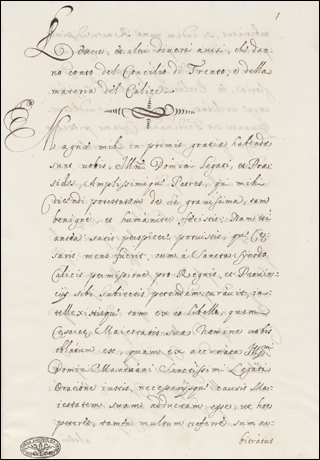 1
Lettere, et altri diversi avisi, che dan-
no conto del Concilio di Trento, e della
materia del Calice.
Magna mihi in primis gratia habenda
sunt vobis, Domini Legati, et Præ-
sides, Amplissimiq; Patres, qui mihi
dicendi potestatem de re gravissima, tam
benigne, et humaniter fecistis. Nam et
antea satis perspicere potuistis, quæ Cæ-
saris mens fuerit, cum à Sancta Synodo
Calicis permissione pro Regnis, et Provin-
cijs sibi subiectis petendam curavit, in-
tellexistisq; tam ex eo libello, quem
Cesareæ Maiestatis suæ nomine vobis
oblatum est, quam ex accurata
Domini Mantuani Sanctissimi Legati
Oratione iustis, necessarijsq; causis Ma-
iestatem suam adductam esse, ut hoc
peteret, tamen multum referre sum ar-
bitratus